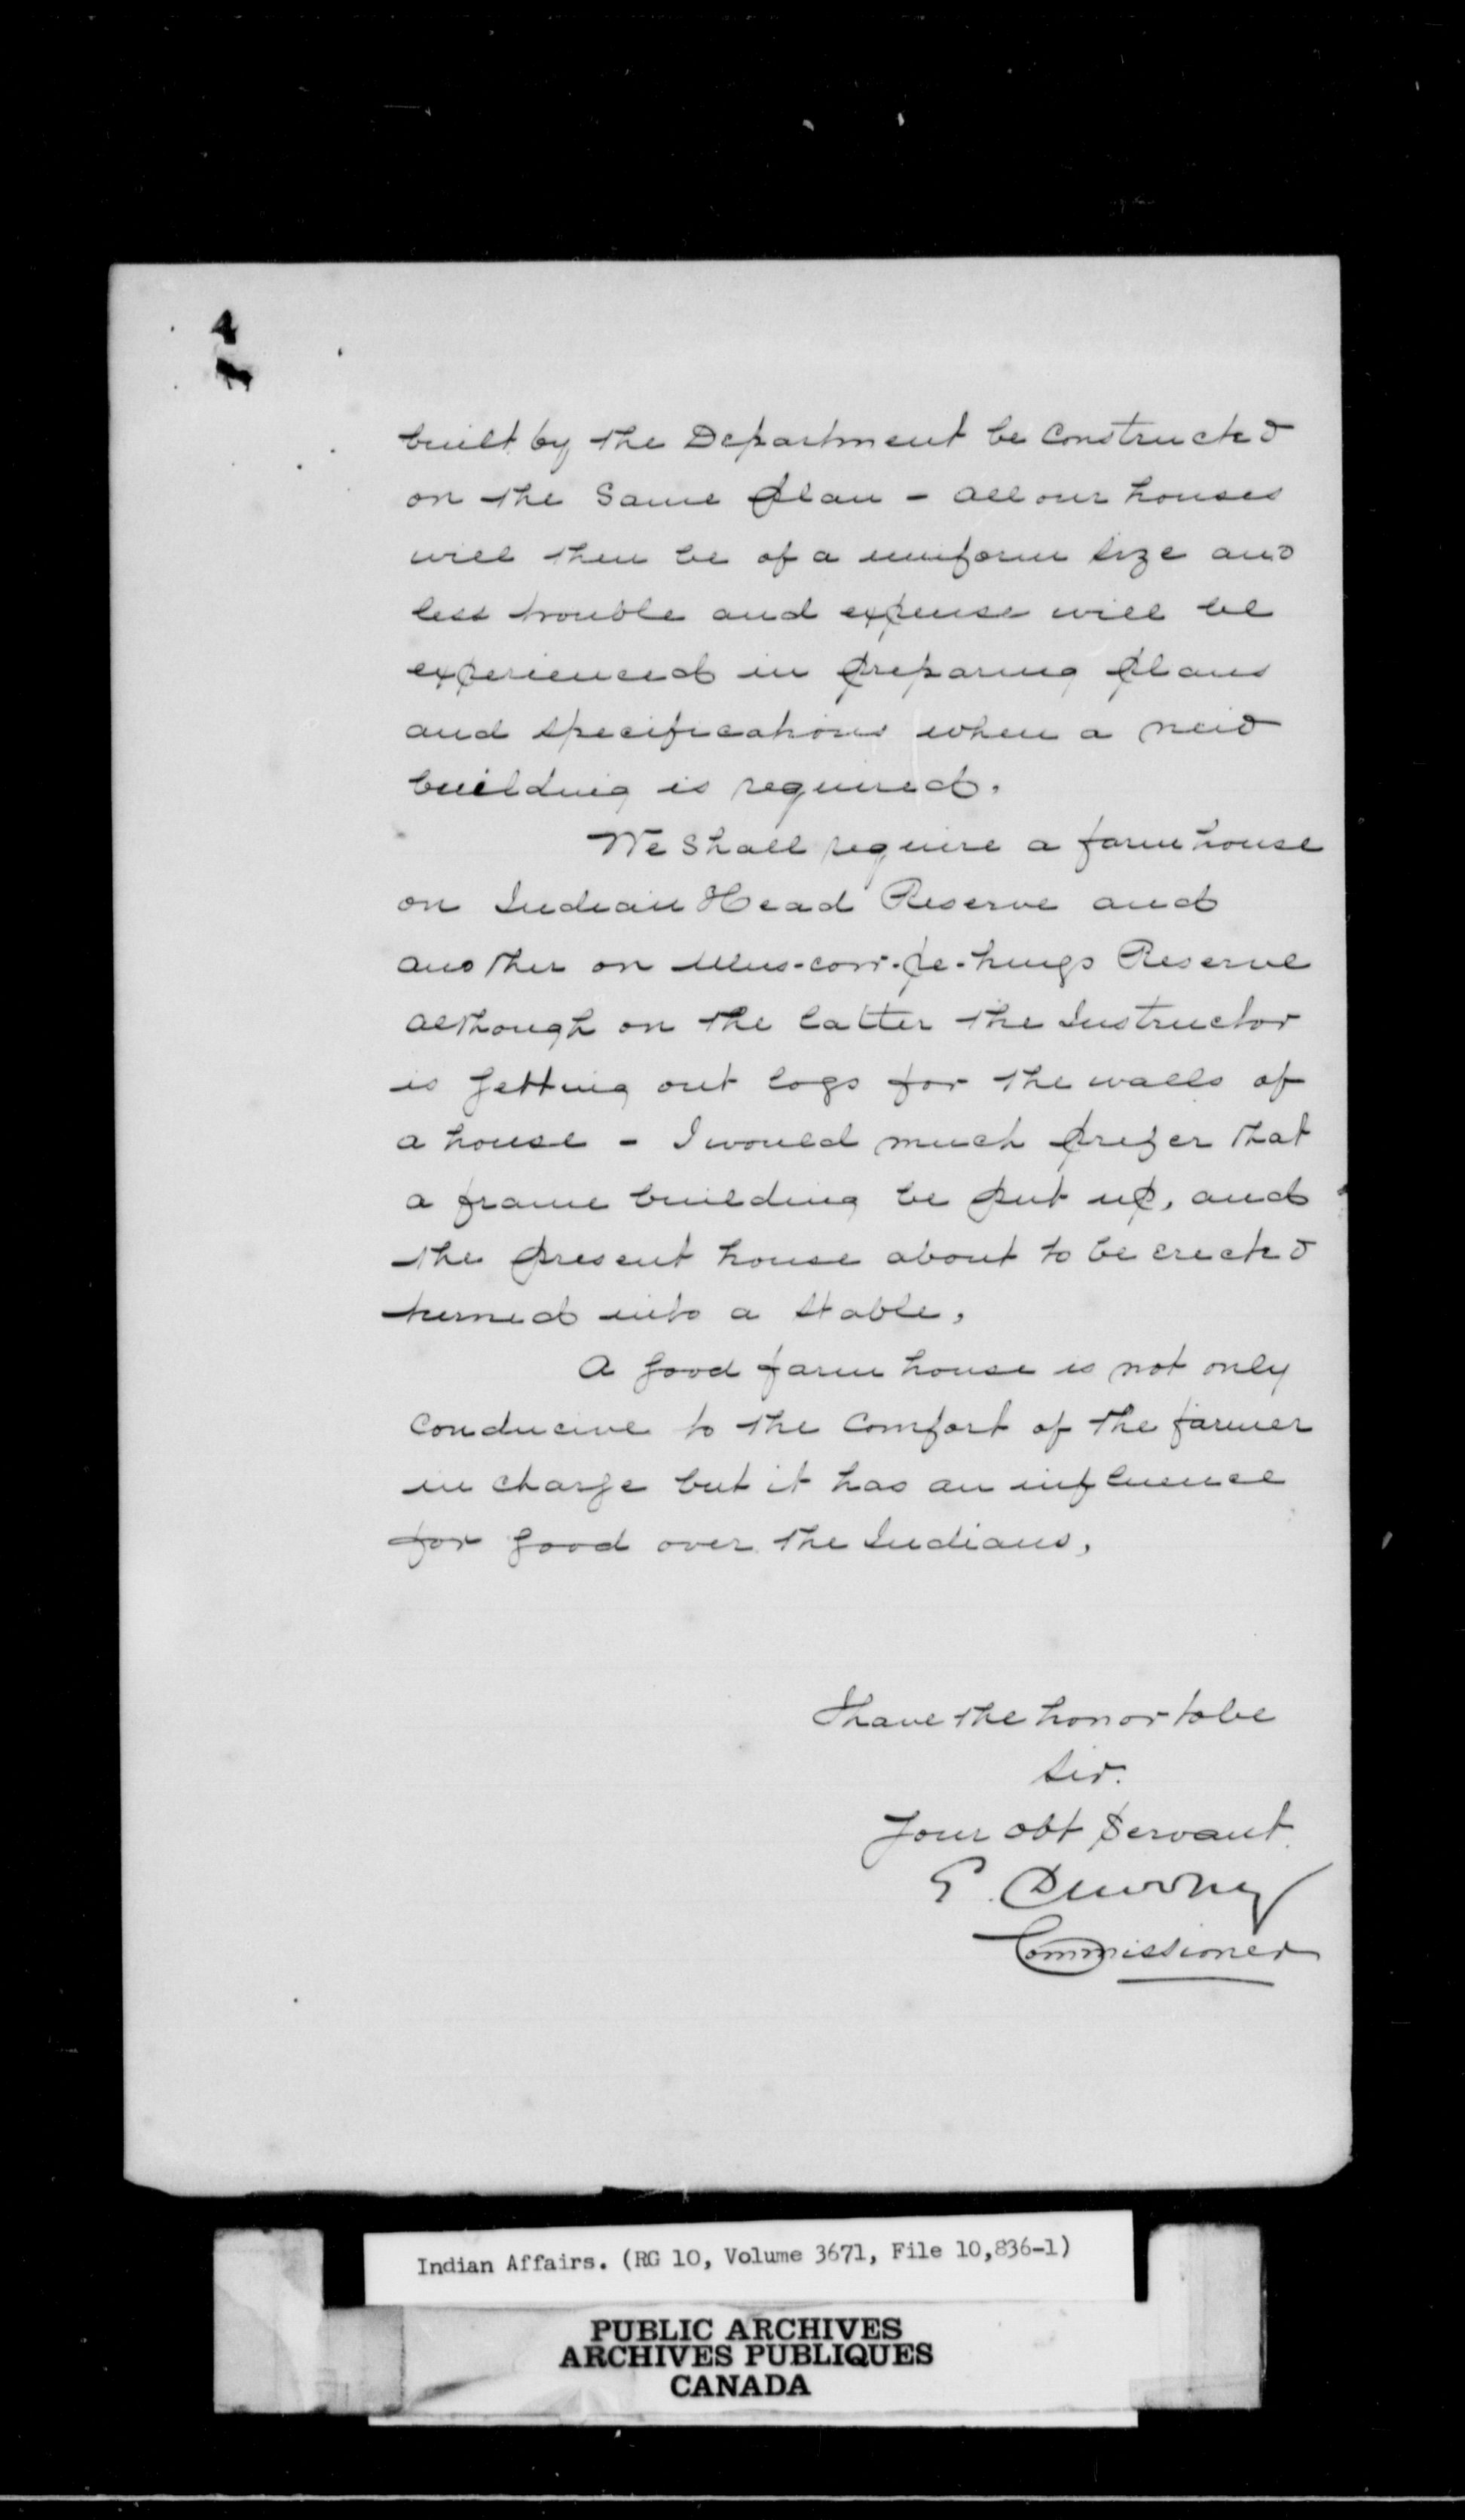 4
built by the Department be constructed
on the same plan - all our houses
will then be of a uniform size and
less trouble and expense will be
experienced in preparing plans
and specifications when a new
building is required.
We shall require a farm house
on Indian Head Reserve and
another on Mus-cow-pe-tungs Reserve
although on the latter the Instructor
is getting out logs for the walls of
a house - I would much prefer that
a frame building be put up, and
the present house about to be erected
turned into a stable,
A good farm house is not only
conducive to the comfort of the farmer
in charge but it has an influence
for good over the Indians,
I have the honor to be
Sir.
Your obt Servant
E. Dewdney
Commissioner
Indian Affairs. (RG 10, Volume 3671, File 10,836-1)
PUBLIC ARCHIVES
ARCHIVES PUBLIQUES
CANADA